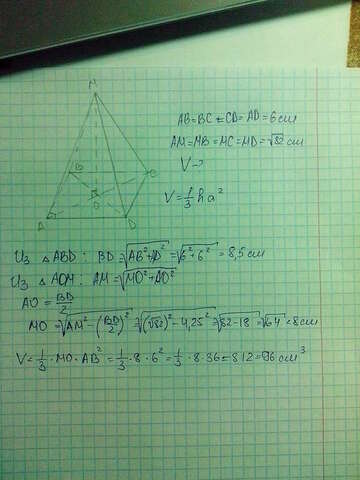 M
AB=BC=CD=AD=6см
AM=MB=MC=MD=√82 см
V-?
V=1/3 ha²
B
C
O
A
D
Из △ABD: BD=√AB²+AD²=√6²+6²=8,5см
Из △AOM: AM=√MO²+AO²
AO=BD/2
MO=√AM²-(BD/2)²=√(√82)²-4,25²=√82-18=√64=8см
V=1/3·MO·AB²=1/3·8·6²=1/3·8·36=8·12=96см³